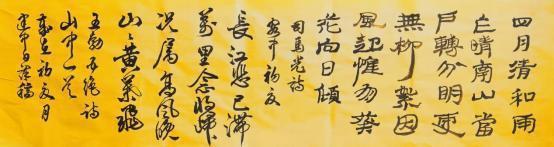 四月清和雨
乍晴南山當
戶轉分明更
無柳絮因
風起惟有葵
花向日傾
司馬光詩
客中初夏
長江悲已滯
萬里念將歸
況屬高風晚
山々黃葉飛
王勃五絕詩
山中一首
初夏月